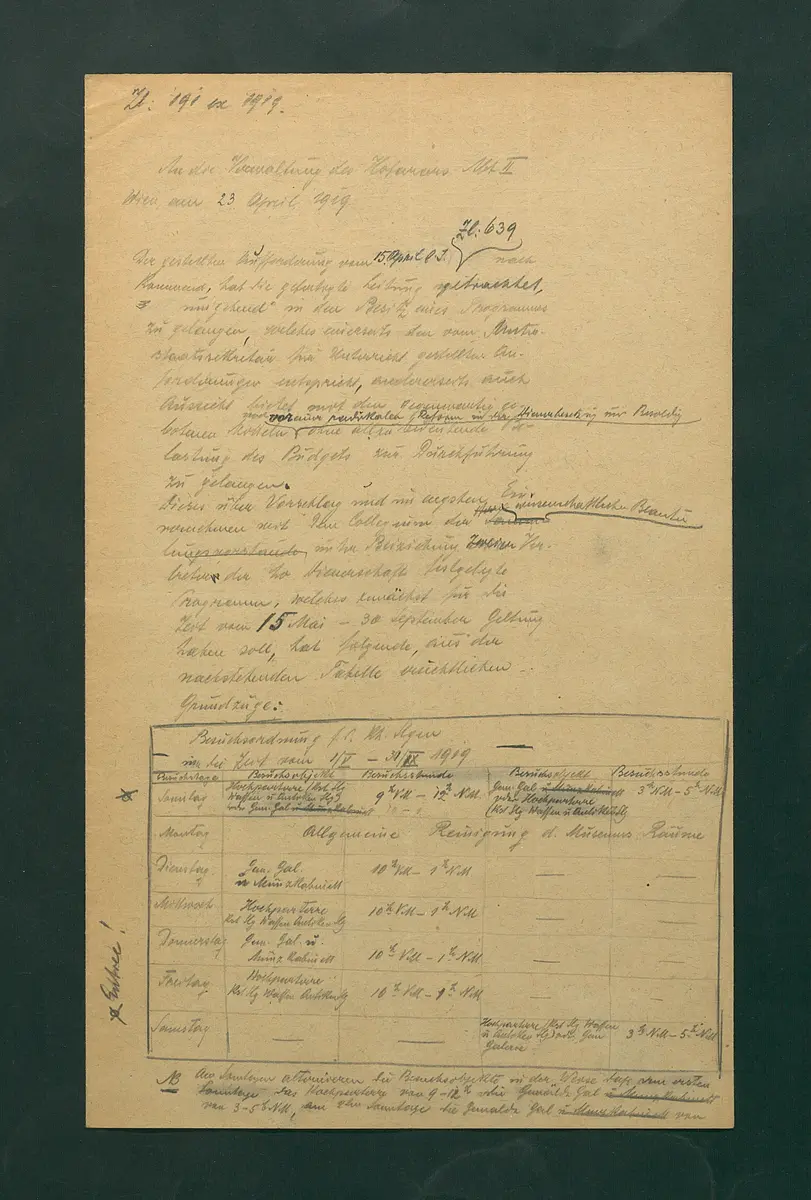 Zl: 191 ex 1919.
An die Verwaltung des Hofärars Abt II
Wien am 23 April 1919
Zl: 639
Der gestellten Aufforderung vom 15. April l. J. nach
kommend, hat die gefertigte Leitung getrachtet,
"umgehend" in den Besitz eines Programmes
zu gelangen, welches einerseits den vom Unter-
staatssekretär für Unterricht gestellten An-
forderungen entspricht, andererseits auch
Aussicht bietet mit den gegenwärtig ge
radikalen Reform in der
botenen Mitteln ohne allzu bedeutende Be
lastung des Budgets zur Durchführung
zu gelangen.
Dieses über Vorschlag und im engsten Ein-
wissenschaftlichen Beamten
vernehmen mit dem Collegium der
unter Beiziehung zweier Ver-
treter der Dienerschaft festgelegte
Programm, welches zunächst für die
Zeit vom 15 Mai – 30 September Geltung
haben soll, hat folgende, aus der
nachstehenden Tabelle ersichtlichen
Grundzüge:
Besuchsordnung f. d. kh. Slgen
in der Zeit vom 1/V – 31/IX 1919
Besuchstage Besuchsobjekte Besuchsstunde Besuchsobjekt Besuchsstunde
Sonntag Hochparterre (Kst Slg Waffen u Antiken Slg) oder Gem. Gal u Münzkabinett 9h VM – 12h NM Gem. Gal u Münzkabinett oder Hochparterre (Kst Slg Waffen u Antiken Slg) 3h NM – 5h NM
Montag Allgemeine Reinigung d. Museums Räume
Dienstag Gem. Gal. u Münzkabinett 10h VM – 1h NM — —
Mittwoch Hochparterre Kst Slg Waffen Antiken Slg 10h VM – 1h NM — —
Donnerstag Gem. Gal. u. Münzkabinett 10h VM – 1h NM — —
Freitag Hochparterre Kst Slg Waffen Antiken Slg 10h VM – 1h NM — —
Samstag — — Hochparterre (Kst Slg Waffen u Antiken Slg) od. Gem Galerie 3h NM – 5h NM
Entree!
NB An Sonntagen alternieren die Besuchsobjekte in der Weise daß am ersten
Sonntage das Hochparterre von 9–12h die Gemälde Gal u Münzkabinett
von 3–5h NM, am 2ten Sonntage die Gemälde Gal u Münzkabinett von